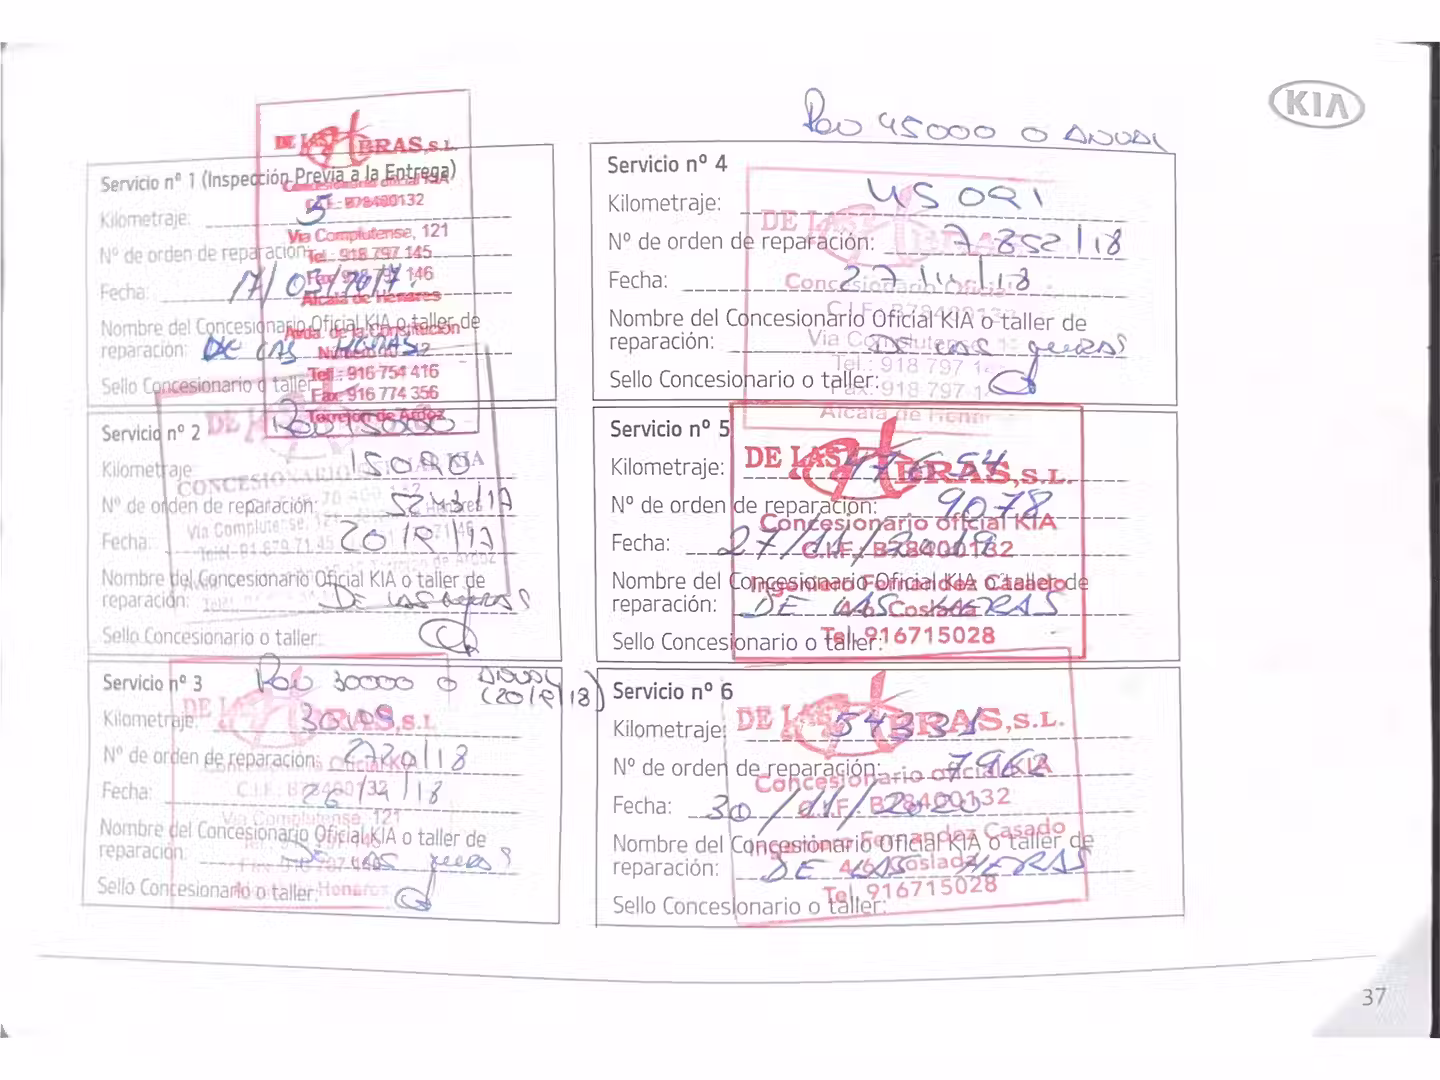 KIA
Rev 45000 o ANUAL
DE LAS HERAS, S.L.
Servicio nº 1 (Inspección Previa a la Entrega)
Concesionario oficial KIA
C.I.F.: B78400132
Kilometraje: 5
Vía Complutense, 121
Nº de orden de reparación:
Tel.: 918 797 145
Fax: 918 797 146
Fecha: 17/03/2017
Alcalá de Henares
Nombre del Concesionario Oficial KIA o taller de
Avda. de la Constitución
reparación: DE LAS HERAS
Telf.: 916 754 416
Sello Concesionario o taller:
Fax: 916 774 356
Torrejón de Ardoz
Servicio nº 2
Rev 15000
Kilometraje:
CONCESIONARIO
Nº de orden de reparación:
Vía Complutense, 121
Fecha:
Nombre del Concesionario Oficial KIA o taller de
reparación: DE LAS HERAS
Sello Concesionario o taller:
Servicio nº 3
Rev 30000 o ANUAL
DE LAS HERAS, S.L.
Kilometraje:
Nº de orden de reparación:
Concesionario Oficial KIA
Fecha:
Vía Complutense, 121
Nombre del Concesionario Oficial KIA o taller de
reparación: DE LAS HERAS
Sello Concesionario o taller:
Servicio nº 4
Kilometraje: 45091
DE LAS HERAS
Nº de orden de reparación: 7852/18
Fecha: 27/11/18
Concesionario Oficial
C.I.F.: B78400132
Nombre del Concesionario Oficial KIA o taller de
Vía Complutense
reparación: DE LAS HERAS
Tel.: 918 797 1
Sello Concesionario o taller:
Fax: 918 797 1
Alcalá de Henar
Servicio nº 5
DE LAS HERAS, S.L.
Kilometraje:
Nº de orden de reparación: 9078
Concesionario oficial KIA
Fecha: 27/11/2019
C.I.F. B78400132
Nombre del Concesionario Oficial KIA o taller de
Ingeniero Fernández Casado
reparación: DE LAS HERAS
4-6 Coslada
Sello Concesionario o taller:
Tel. 916715028
Servicio nº 6
DE LAS HERAS, S.L.
Kilometraje: 54331
Nº de orden de reparación: 7962
Concesionario oficial KIA
Fecha: 30/11/2020
C.I.F. B78400132
Nombre del Concesionario Oficial KIA o taller de
Ingeniero Fernandez Casado
reparación: DE LAS HERAS
4-6 Coslada
Sello Concesionario o taller:
Tel. 916715028
37